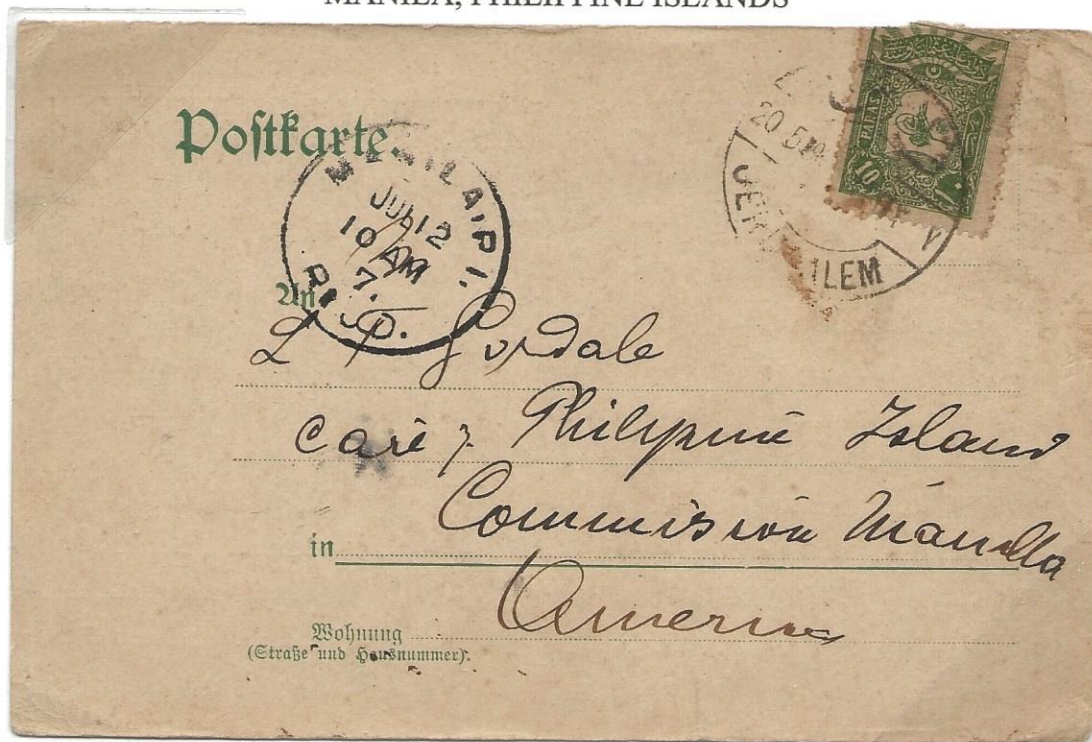 MANILA, PHILIPPINE ISLANDS
Postkarte.
MANILA, P.I.
JUL 12
10 AM
7
REC'D.
20 5
JERUSALEM
10 PARAS
An
L Gordale
care Philipine Island
Commission Manilla
in
America
Wohnung
(Straße und Hausnummer).